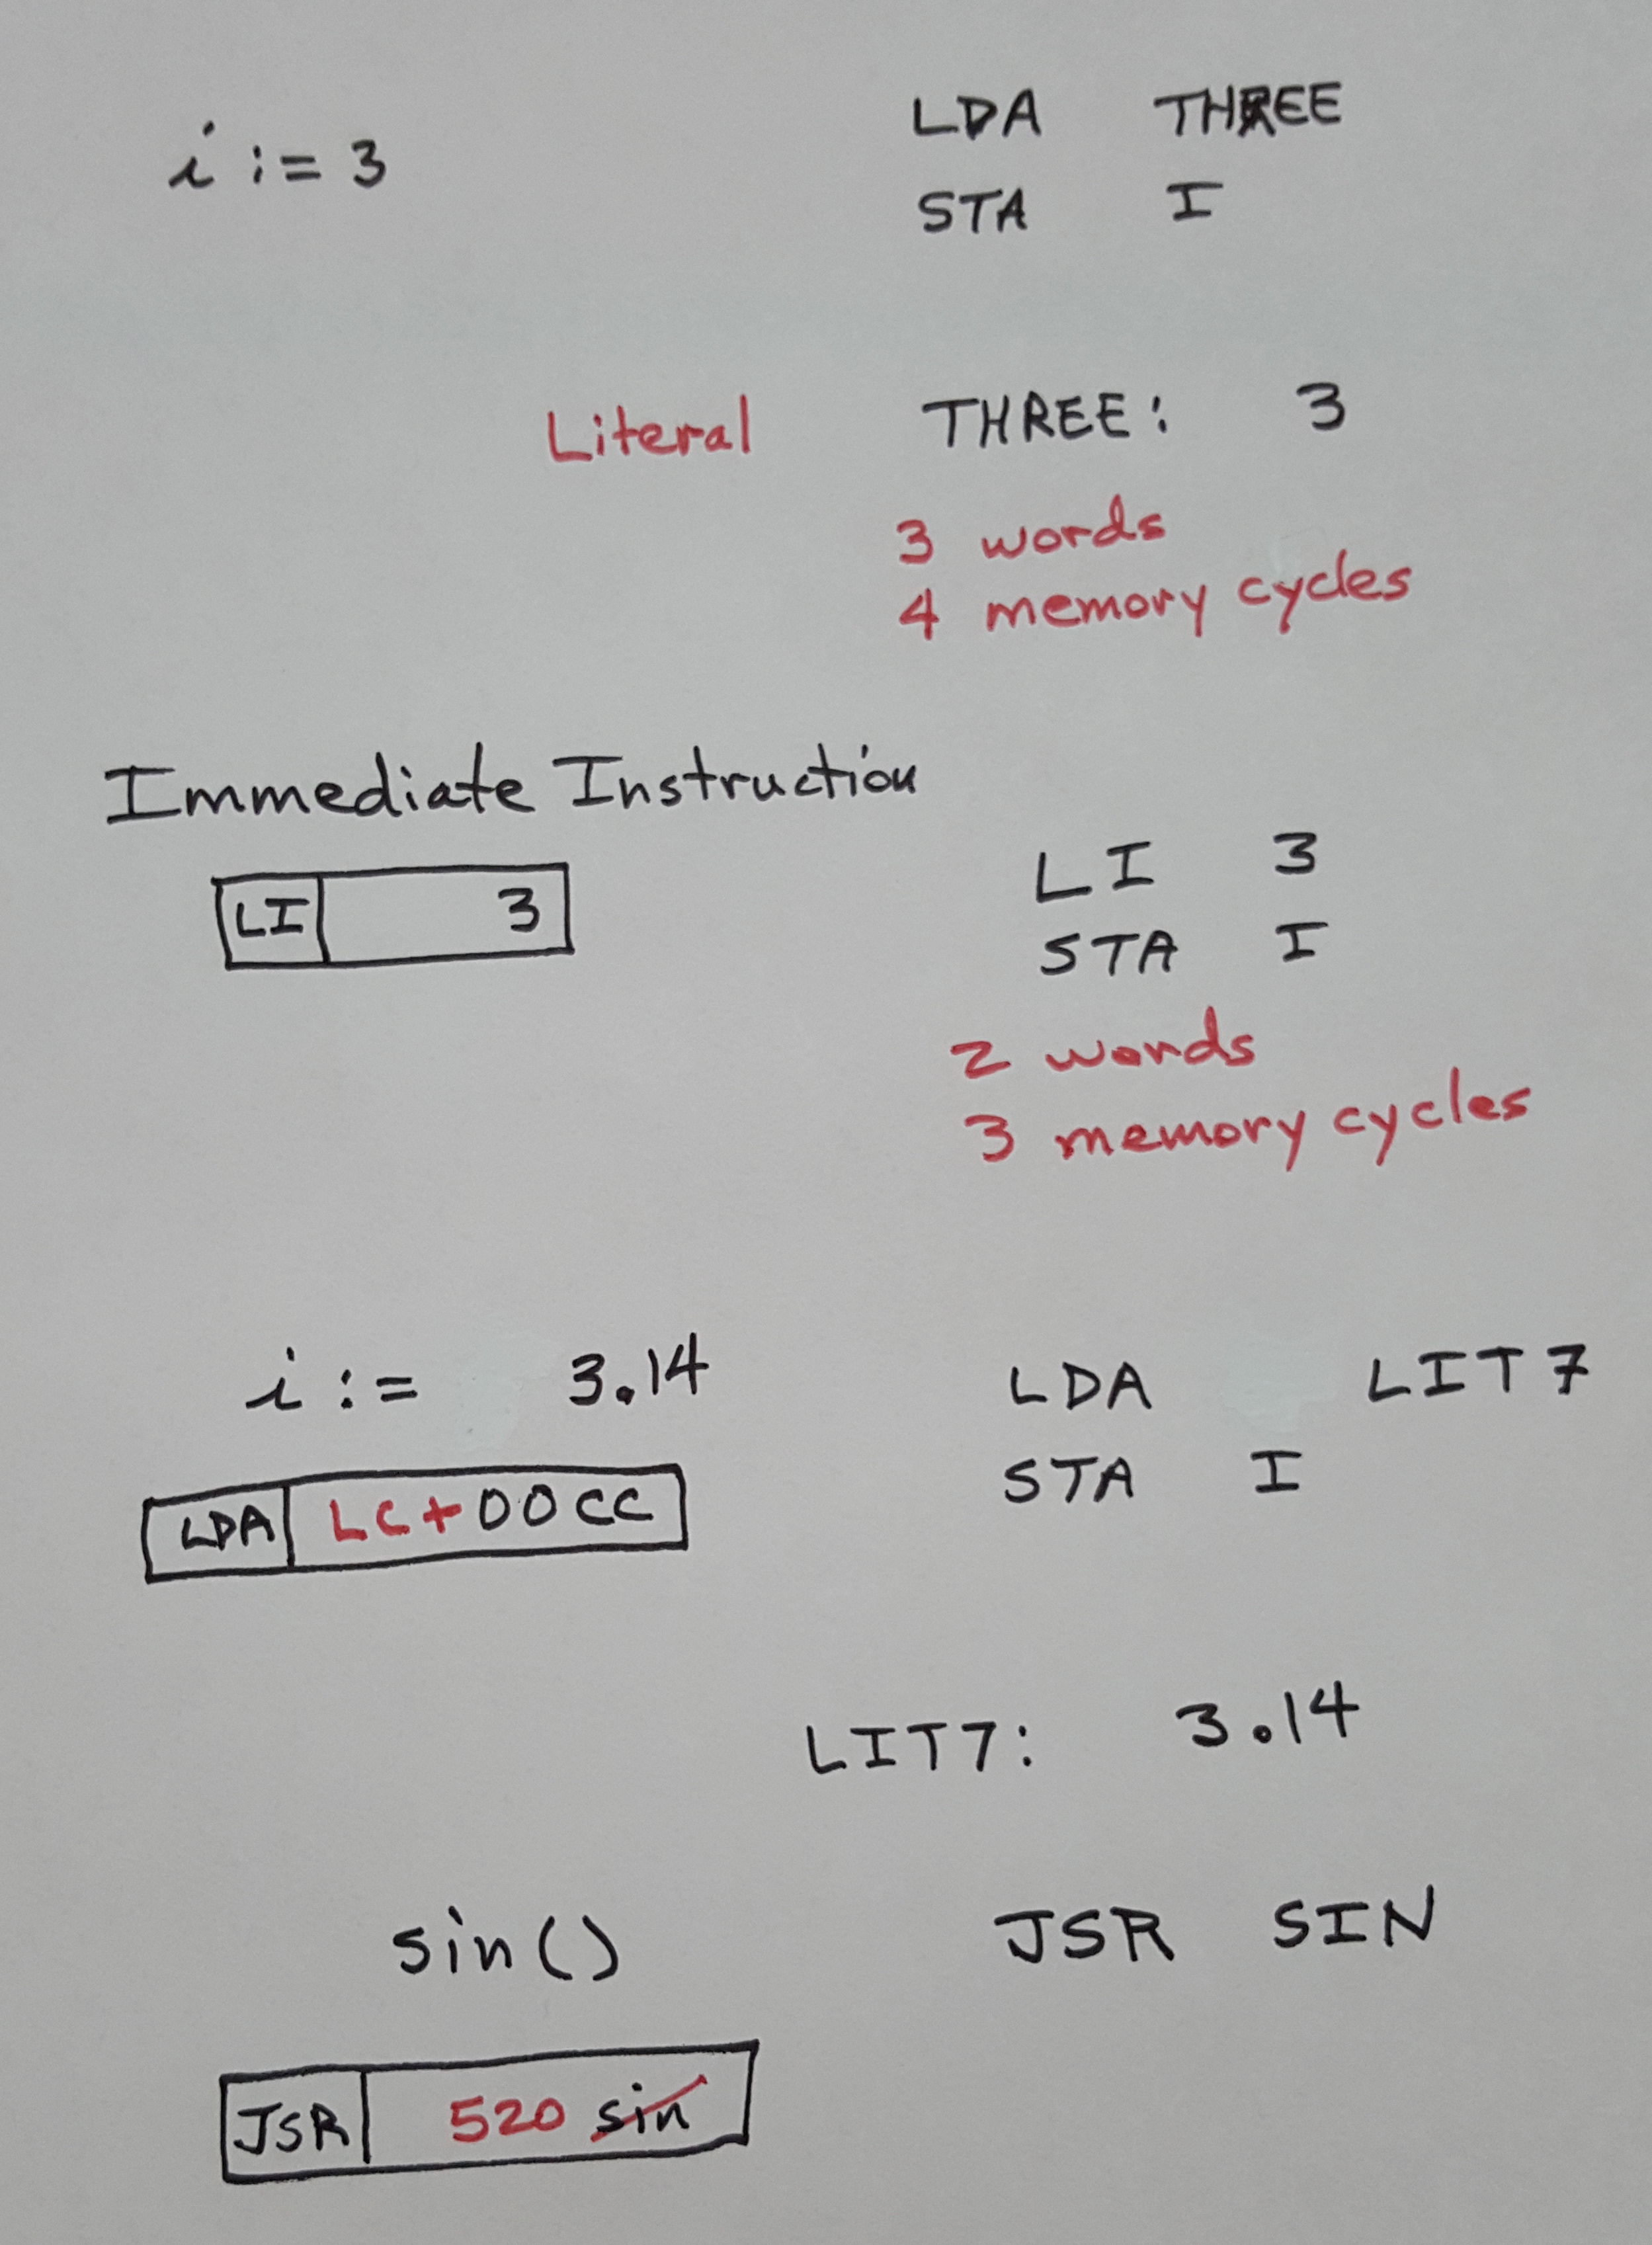 i := 3
LDA THREE
STA I
Literal THREE: 3
3 words
4 memory cycles
Immediate Instruction
LI 3
LI 3
STA I
2 words
3 memory cycles
i := 3.14
LDA LIT7
STA I
LDA LC+00CC
LIT7: 3.14
sin() JSR SIN
JSR 520 sin